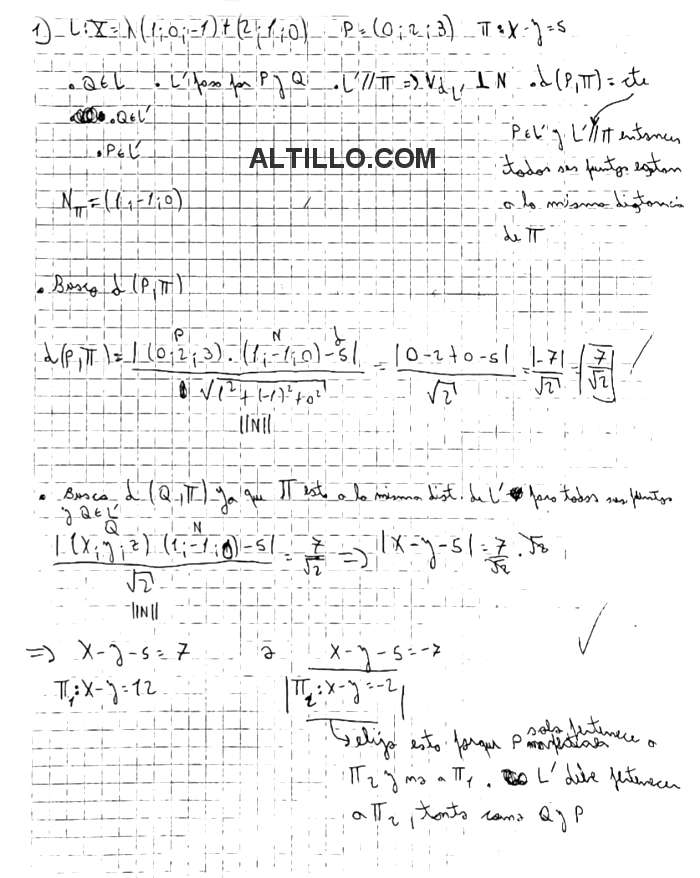 1) L: X = λ(1;0;-1)+(2;1;0) P=(0;2;3) π: x-y=5
• Q∈L • L' pasa por P y Q • L'//π ⇒ Vd_L' ⊥ N • d(P,π)=cte
• Q∈L'
• P∈L'
P∈L' y L'//π entonces
todos sus puntos estan
a la misma distancia
de π
ALTILLO.COM
N_π=(1;-1;0)
• Busco d(P,π)
P N d
d(P,π)= |(0;2;3).(1;-1;0)-5| / √(1²+(-1)²+0²) = |0-2+0-5| / √2 = |-7| / √2 = 7/√2
||N||
• Busco d(Q,π) ya que π esta a la misma dist. de L' para todos sus puntos
y Q∈L'
Q N
|(x;y;z) (1;-1;0)-5| / √2 = 7/√2 ⇒ |x-y-5| = 7/√2 . √2
||N||
⇒ x-y-5=7 o x-y-5=-7
π₁: x-y=12 π₂: x-y=-2
↳ elijo esto porque P solo pertenece a
π₂ y no a π₁. L' debe pertenecer
a π₂, tanto como Q y P